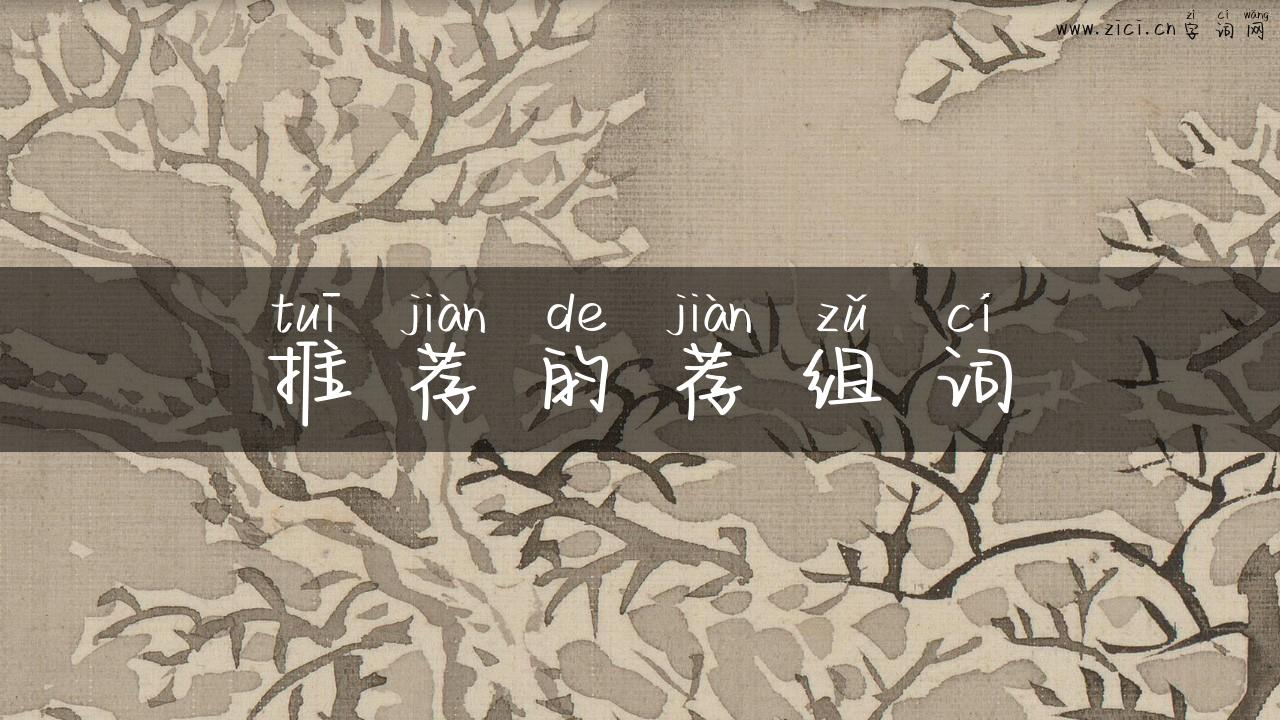 zì cí wǎng
www.zici.cn字词网
tuī jiàn de jiàn zǔ cí
推荐的荐组词